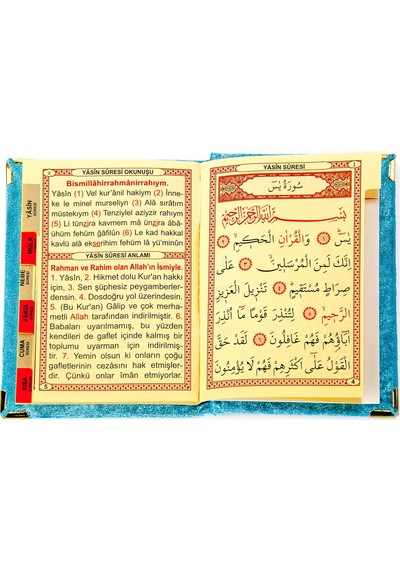 YÂSİN SÛRESİ
سُورَةُ يٰسٓ
بِسْمِ اللّٰهِ الرَّحْمٰنِ الرَّحٖيمِ
يٰسٓ ﴿١﴾ وَالْقُرْاٰنِ الْحَكٖيمِ ﴿٢﴾
اِنَّكَ لَمِنَ الْمُرْسَلٖينَ ﴿٣﴾ عَلٰى
صِرَاطٍ مُسْتَقٖيمٍ ﴿٤﴾ تَنْزٖيلَ الْعَزٖيزِ
الرَّحٖيمِ ﴿٥﴾ لِتُنْذِرَ قَوْمًا مَٓا اُنْذِرَ
اٰبَٓاؤُ۬هُمْ فَهُمْ غَافِلُونَ ﴿٦﴾ لَقَدْ حَقَّ
الْقَوْلُ عَلٰٓى اَكْثَرِهِمْ فَهُمْ لَا يُؤْمِنُونَ
4
YÂSİN SÛRESİ OKUNUŞU
Bismillâhirrahmânirrahıym.
Yâsîn (1) Vel kur'ânil hakiym (2) İnne-
ke le minel murseliyn (3) Alâ sırâtim
müstekıym (4) Tenziylel aziyzir rahıym
(5) Li tünzira kavmem mâ ünzira âbâ-
ühüm fehüm ğâfilûn (6) Le kad hakkal
kavlü alâ ekserihim fehüm lâ yü'minûn
YÂSİN SÛRESİ ANLAMI
Rahman ve Rahim olan Allah'ın İsmiyle.
1. Yâsîn, 2. Hikmet dolu Kur'an hakkı
için, 3. Sen şüphesiz peygamberler-
densin. 4. Dosdoğru yol üzerindesin.
5. (Bu Kur'an) Gâlip ve çok merha-
metli Allah tarafından indirilmiştir. 6.
Babaları uyarılmamış, bu yüzden
kendileri de gaflet içinde kalmış bir
toplumu uyarman için indirilmiş-
tir. 7. Yemin olsun ki onların çoğu
gafletlerinin cezâsını hak etmişler-
dir. Çünkü onlar îmân etmiyorlar.
5
YÂSİN
MÜLK
NEBE
CUMA